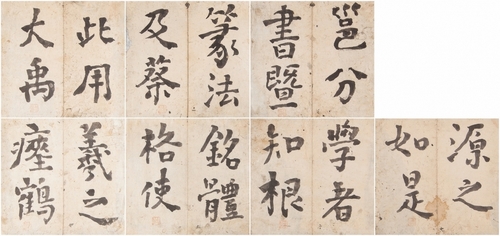 此用
大禹
篆法
及蔡
邕分
書暨
羲之
瘞鶴
銘體
格使
學者
知根
源之
如是